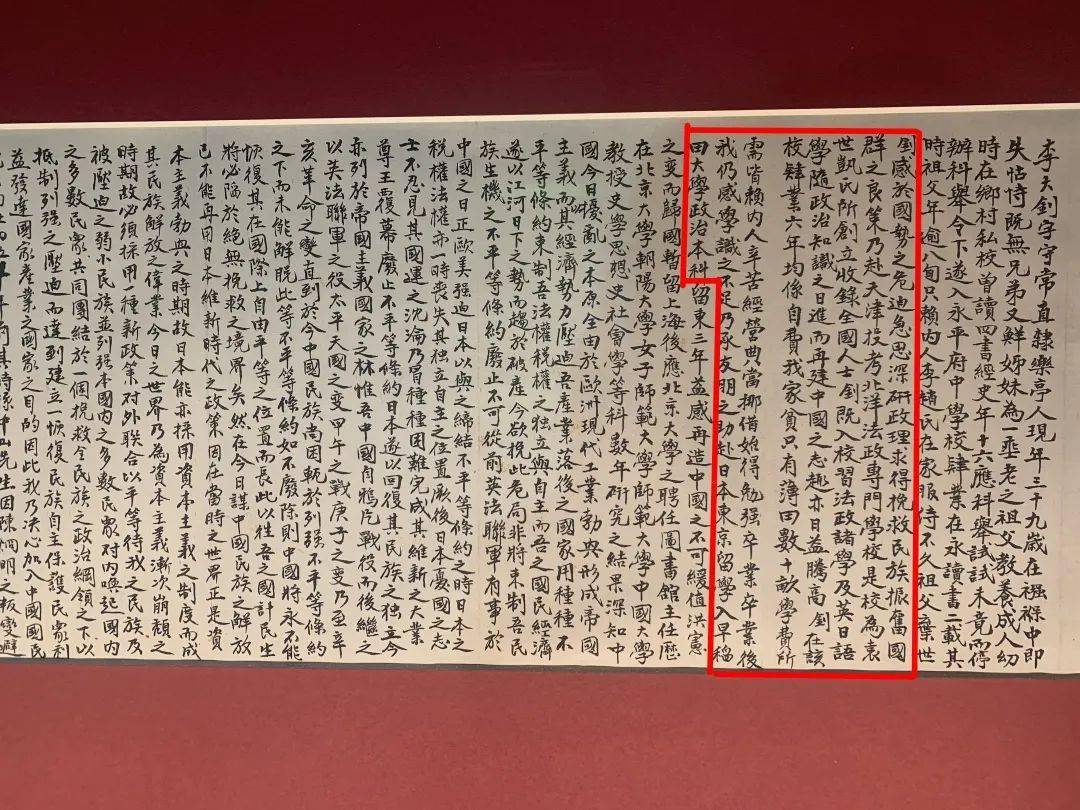 李大釗字守常直隸樂亭人現年三十九歲在襁褓中即
失怙恃既無兄弟又鮮姊妹為一垂老之祖父教養成人幼
時在鄉村私校曾讀四書經史年十六應科舉試試未竟而停
辦科舉令下遂入永平府中學校肄業在永讀書二載其
時祖父年逾八旬只賴內人李趙氏在家服侍不久祖父棄世
釗感於國勢之危迫急思深研政理求得挽救民族振奮國
群之良策乃赴天津投考北洋法政專門學校是校為袁
世凱氏所創立收錄全國人士釗既入校習法政諸學及英日語
學隨政治知識之日進而再建中國之志趣亦日益騰高釗在該
校肄業六年均係自費我家貧只有薄田數十畝學費所
需皆賴內人辛苦經營典當挪借始得勉強卒業卒業後
我仍感學識之不足乃承友朋之助赴日本東京留學入早稻
田大學政治本科留東三年益感再造中國之不可緩值洪憲
之變而歸國暫留上海後應北京大學之聘任圖書館主任歷
在北京大學朝陽大學女子師範大學師範大學中國大學
教授史學思想史社會學等科數年研究之結果深知中
國今日擾亂之本原全由於歐洲現代工業勃興形成帝國
主義而其經濟勢力壓迫吾產業落後之國家用種種不
平等條約束制吾法權稅權之獨立與自主而吾之國民經濟
遂以江河日下之勢而趨於破產今欲挽此危局非將束制吾民
族生機之不平等條約廢止不可從前英法聯軍有事於
中國之日正歐美強迫日本以與之締結不平等條約之時日本之
稅權法權亦一時喪失其獨立自主之位置厥後日本憂國之志
士不忍見其國運之沈淪乃冒種種困難完成其維新之大業
尊王覆幕廢止不平等條約日本遂以回復其民族之獨立今
亦列於帝國主義國家之林惟吾中國自鴉片戰役而後繼之
以英法聯軍之役太平天國之變甲午之戰庚子之變乃至辛
亥革命之變直到於今中國民族尚困軛於列強不平等條約
之下而未能解脫此等不平等條約如不廢除則中國將永不能
恢復其在國際上自由平等之位置而長此以往吾之國計民生
將必陷於絕無挽救之境界矣然在今日謀中國民族之解放
已不能再用日本維新時代之政策因在當時之世界正是資
本主義勃興之時期故日本能亦採用資本主義之制度而成
其民族解放之偉業今日之世界乃為資本主義漸次崩頹之
時期故必須採用一種新政策對外聯合以平等待我之民族及
被壓迫之弱小民族並列強本國內之多數民眾對內喚起國內
之多數民眾共同團結於一個挽救全民族之政治綱領之下以
抵制列強之壓迫而達到建立一恢復民族自主保護民眾利
益發達國家產業之國家之目的因此我乃決心加入中國國民